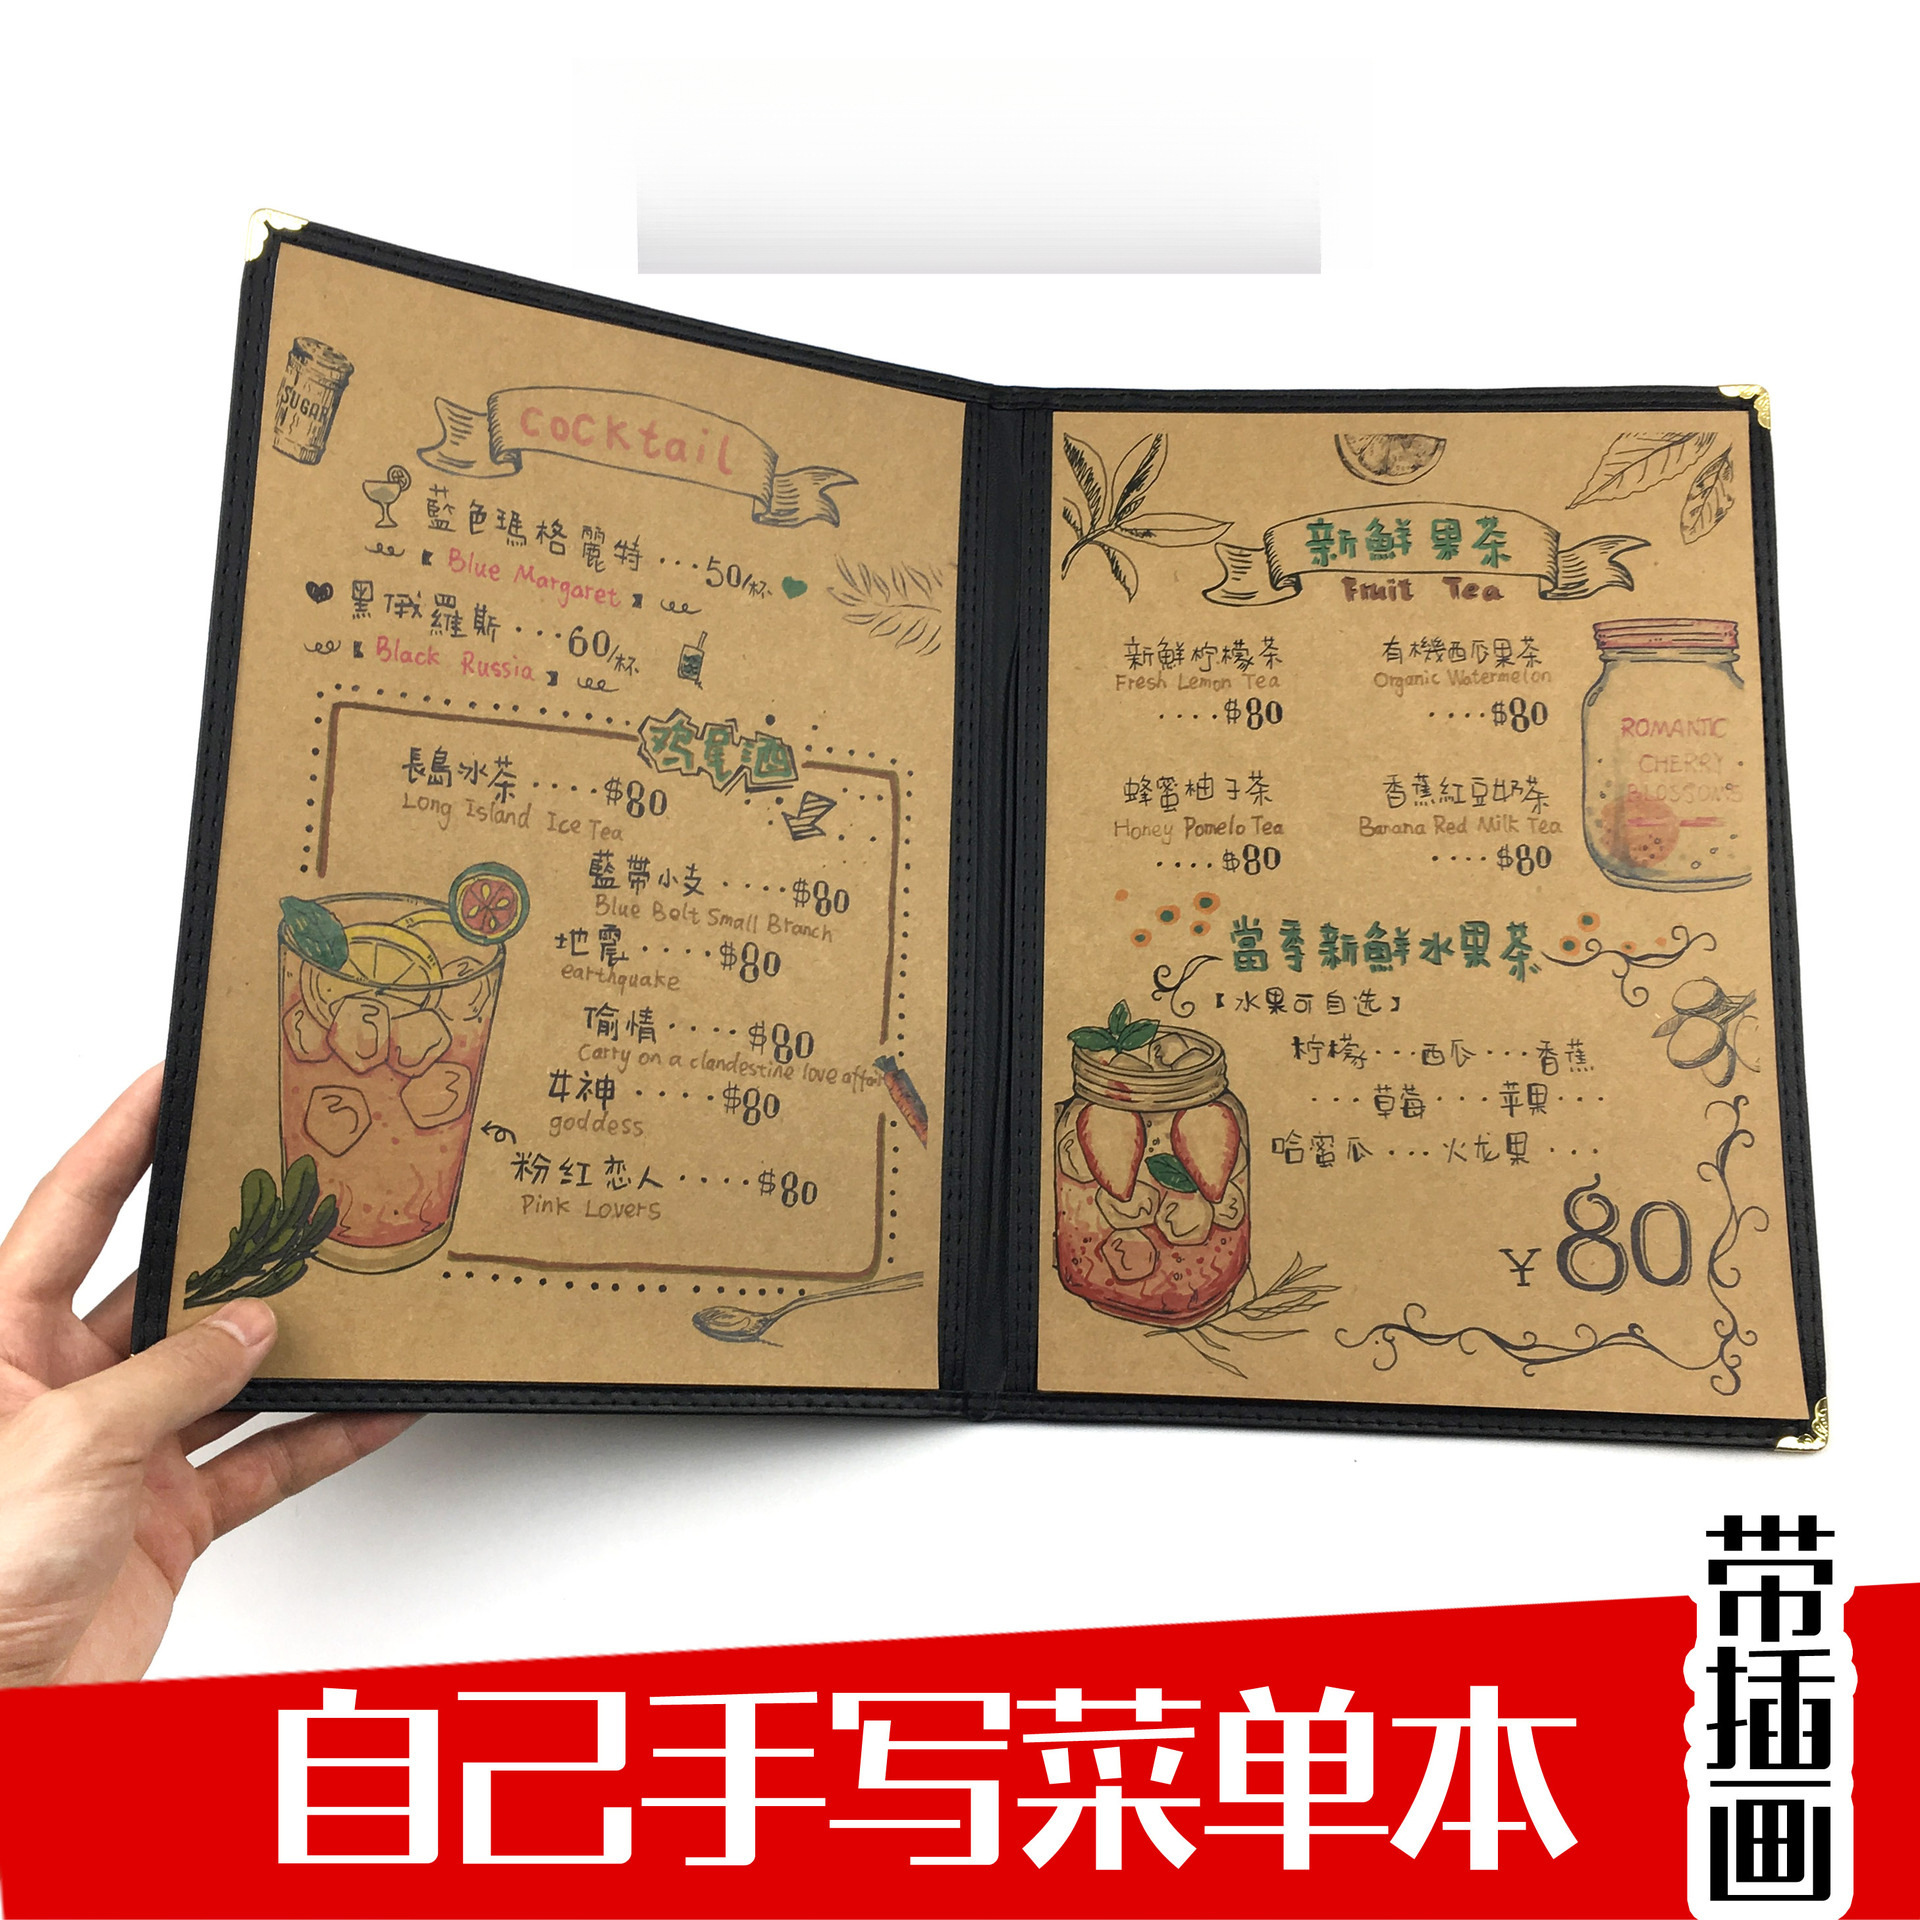 SUGAR
Cocktail
藍色瑪格麗特···50/杯
【Blue Margaret】
黑俄羅斯···60/杯
【Black Russia】
鸡尾酒
長島冰茶····$80
Long Island Ice Tea
藍帶小支····$80
Blue Bolt Small Branch
地震····$80
earthquake
偷情····$80
Carry on a clandestine love affair
女神····$80
goddess
粉紅恋人····$80
Pink Lovers
新鮮果茶
Fruit Tea
新鮮柠檬茶
Fresh Lemon Tea
····$80
有機西瓜果茶
Organic Watermelon
····$80
蜂蜜柚子茶
Honey Pomelo Tea
····$80
香蕉紅豆奶茶
Banana Red Milk Tea
····$80
ROMANTIC
CHERRY
BLOSSOMS
當季新鮮水果茶
【水果可自选】
柠檬···西瓜···香蕉
···草莓···苹果···
哈蜜瓜···火龙果···
¥80
自己手写菜单本
带插画